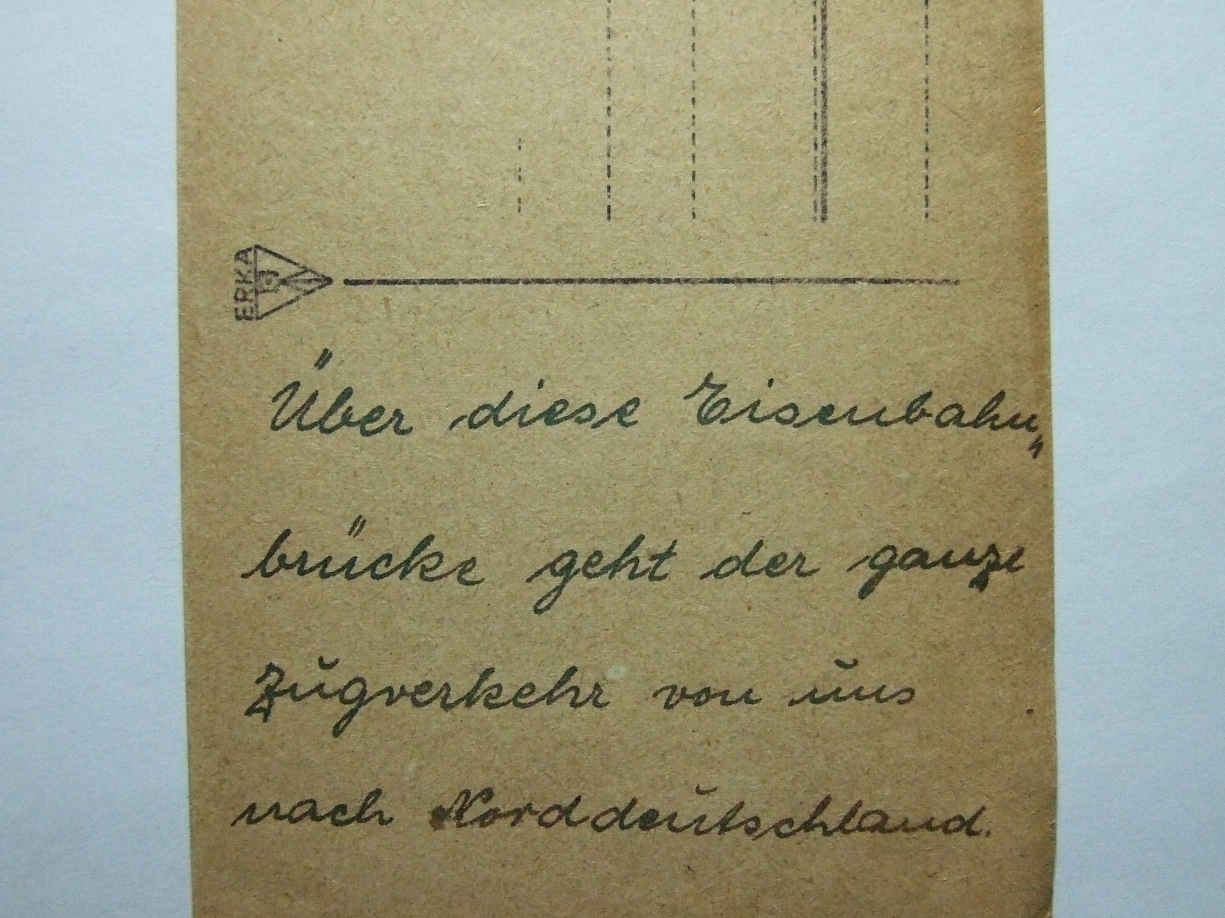 ERKA
Über diese Eisenbahn„
brücke geht der ganze
Zugverkehr von uns
nach Norddeutschland.